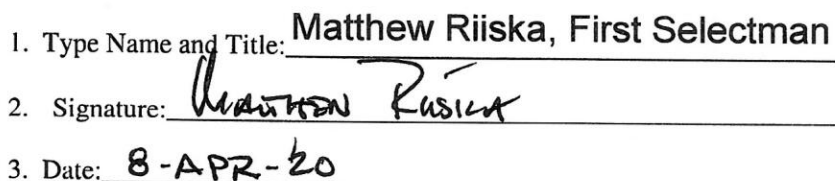 1. Type Name and Title: Matthew Riiska, First Selectman
2. Signature: Matthew Riiska
3. Date: 8-APR-20